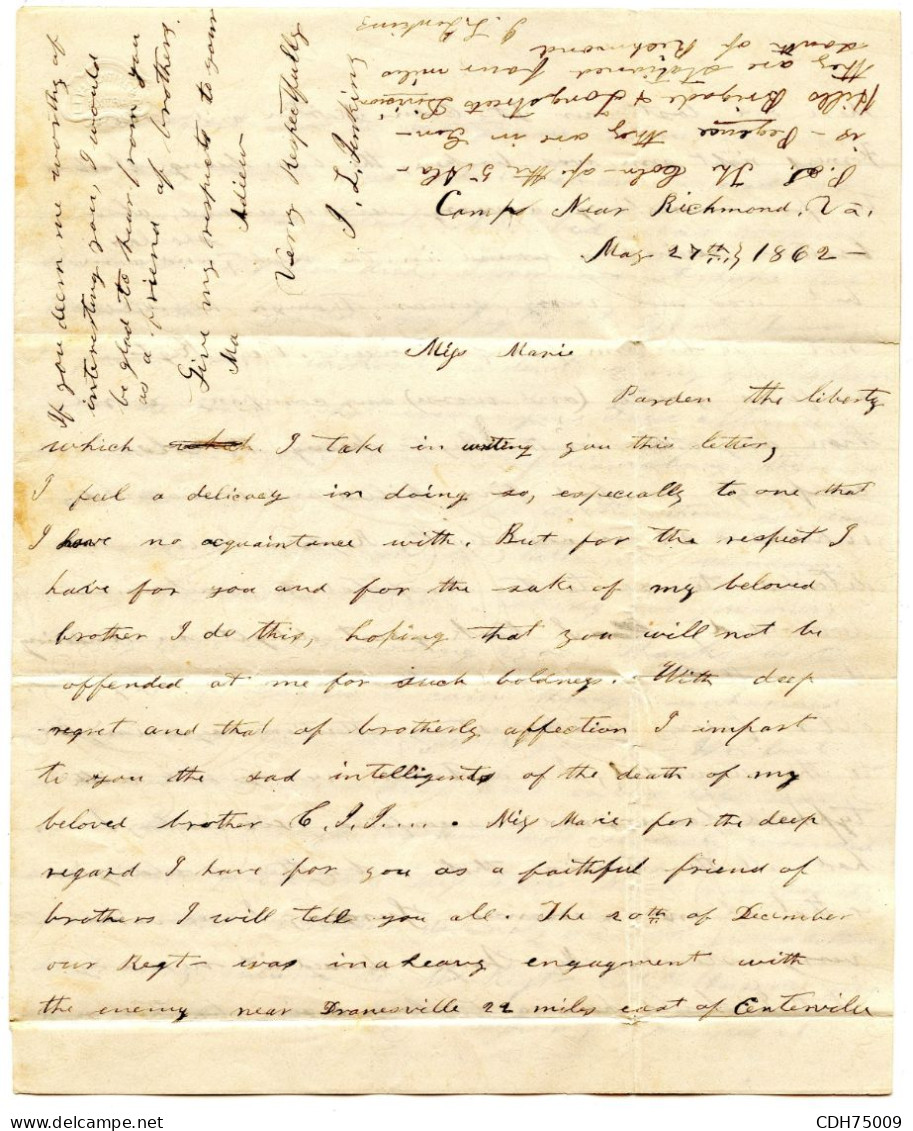 Camp Near Richmond. Va.
May 27th 1862 -
Miss Marie
Parden the liberty
which which I take in writing you this letter,
I feel a delicacy in doing so, especially to one that
I have no acquaintance with. But for the respect I
have for you and for the sake of my beloved
brother I do this, hoping that you will not be
offended at me for such boldness. With deep
regret and that of brotherly affection I impart
to you the sad intelligents of the death of my
beloved brother C. J. J..... . Miss Marie for the deep
regard I have for you as a faithful friend of
brothers I will tell you all. The 20th of December
our Regt - was in a heavy engagment with
the enemy near Dranesville 22 miles east of Centerville
If you deem me worthy of
interesting you, I would
be glad to hear from you
as a friend of brothers.
Give my respects to your
Ma Adieu -
Very Respectfully
J. L. Jenkins
P.S. The Coln - of the 5 Ala -
is - Pegues They are in Gen -
Hills Brigade & Longstreets Division
they are stationed four miles
south of Richmond
J. L. Jenkins
CDH75009